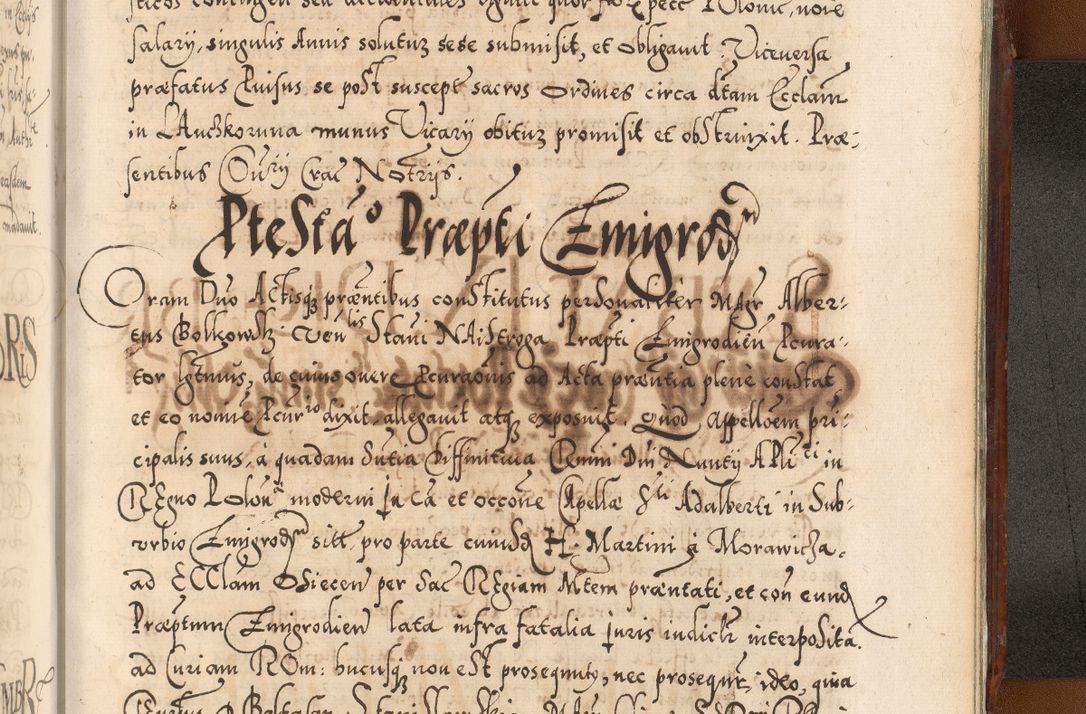 salarÿ, singulis Annis solutuȝ sese submisit, et obligauit. Viceuersa
præfatus Quisus se post suscept sacros ordines circa dtam Ecclam
in LAuchkoruna munus Vicarÿ obituȝ promisit et obstrinxit. Præ-
sentibus Crac Notrÿs.
PteSta° Præpti Emigrod
Coram Duo Actisq præntibus constitutus personaliter Magr Alber-
tus Bolkowsk Ven lis Stani NAistroga Præpti Emigrodien Pcura-
tor lgtmus, de cuius onere Pcuraonis ad Acta præntia plene constat
et eo nomine Pcurrio dixit, allegauit atq exposuit. Quod Appelloem pri-
cipalis suus, a quadam Sntia Diffinitiua Rmi Dni Nuntÿ APli ci in
REgno Polon moderni in Ca et occone Capellæ Sti Adalberti in Sub-
vrbio Emigrod sitt, pro parte cuiusd H. Martini à Morawicza.
ad ECClam Osiecen per Sac REgiam Mtem præntati, et con eund
Præptum Emigrodien lata infra fatalia iuris iudiclr interposita.
ad Curiam ROm: hucusq non est prosequuty, nec prosequit, ideo, quia